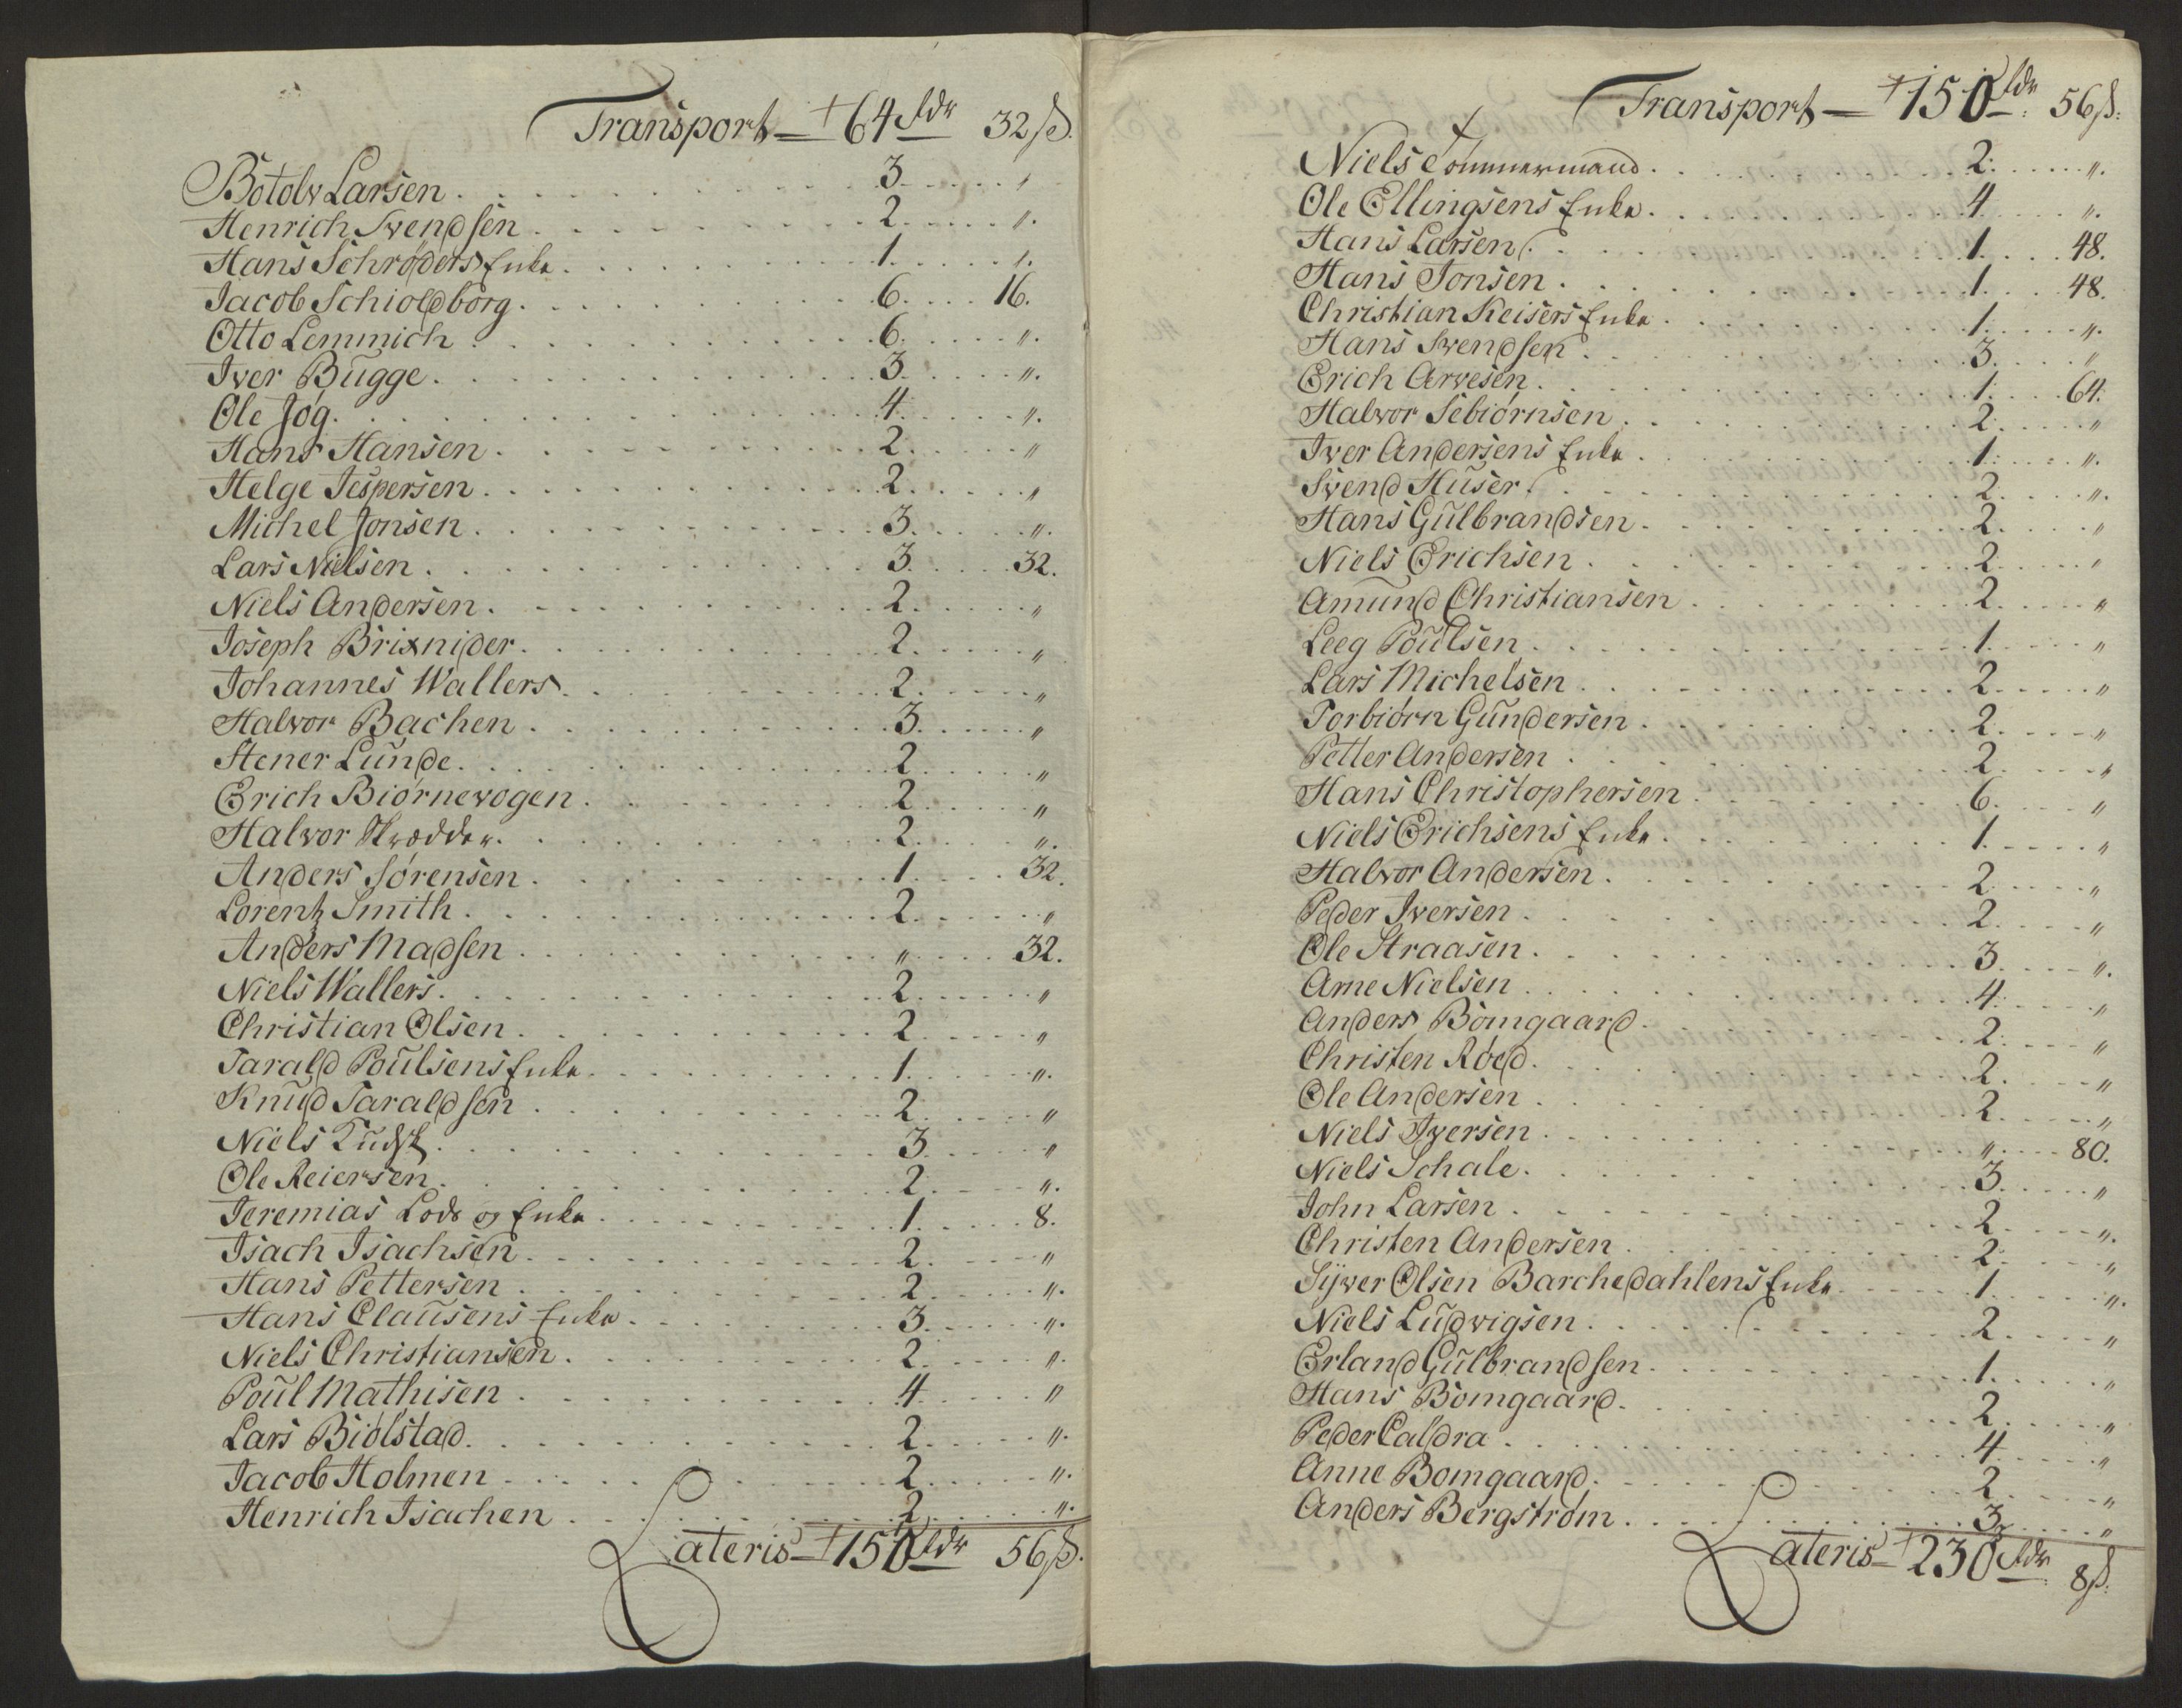 Transport — 64 rdr 32 ß.
Botolv Larsen . . . 3 . . . "
Henrich Svendsen . . . 2 . . . "
Hans Schrøders Enke . . . 1 . . . "
Jacob Schioldborg . . . 6 . . . 16.
Otto Lemmich . . . 6 . . . "
Iver Bugge . . . 3 . . . "
Ole Jøg . . . 4 . . . "
Hans Hansen . . . 2 . . . "
Helge Jespersen . . . 2 . . . "
Michel Jonsen . . . 3 . . . "
Lars Nielsen . . . 3 . . . 32.
Niels Andersen . . . 2 . . . "
Joseph Brixnider . . . 2 . . . "
Johannes Wallers . . . 2 . . . "
Halvor Bachen . . . 3 . . . "
Stener Lunde . . . 2 . . . "
Erich Biørnevogen . . . 2 . . . "
Halvor Skrædder . . . 2 . . . "
Anders Sørensen . . . 1 . . . 32.
Lorentz Smith . . . 2 . . . "
Anders Madsen . . . " . . . 32.
Niels Wallers . . . 2 . . . "
Christian Olsen . . . 2 . . . "
Tarald Poulsens Enke . . . 1 . . . "
Knud Taraldsen . . . 2 . . . "
Niels . . . 3 . . . "
Ole Reiersen . . . 2 . . . "
Jeremias Lods og Enke . . . 1 . . . 8.
Isach Isachsen . . . 2 . . . "
Hans Pettersen . . . 2 . . . "
Hans Clausens Enke . . . 3 . . . "
Niels Christiansen . . . 2 . . . "
Poul Mathisen . . . 4 . . . "
Lars Biølstad . . . 2 . . . "
Jacob Holmen . . . 2 . . . "
Henrich Isachen . . . 2 . . . "
Lateris — 150 rdr 56 ß.
Transport — 150 rdr 56 ß.
Niels Tømmermand . . . 2 . . . "
Ole Ellingsens Enke . . . 4 . . . "
Hans Larsen . . . 1 . . . 48.
Hans Jonsen . . . 1 . . . 48.
Christian Keisers Enke . . . 1 . . . "
Hans Svendsen . . . 3 . . . "
Erich Arvesen . . . 1 . . . 64.
Halvor Sebiørnsen . . . 2 . . . "
Iver Andersens Enke . . . 1 . . . "
Svend Huser . . . 2 . . . "
Hans Gulbrandsen . . . 2 . . . "
Niels Erichsen . . . 2 . . . "
Amund Christiansen . . . 2 . . . "
Leeg Poulsen . . . 1 . . . "
Lars Michelsen . . . 2 . . . "
Torbiørn Gundersen . . . 2 . . . "
Petter Andersen . . . 2 . . . "
Hans Christophersen . . . 6 . . . "
Niels Erichsens Enke . . . 1 . . . "
Halvor Andersen . . . 2 . . . "
Peder Iversen . . . 2 . . . "
Ole Straasen . . . 3 . . . "
Arne Nielsen . . . 4 . . . "
Anders Bomgaard . . . 2 . . . "
Christen Røed . . . 2 . . . "
Ole Andersen . . . 2 . . . "
Niels Iversen . . . " . . . 80.
Niels Schale . . . 3 . . . "
John Larsen . . . 2 . . . "
Christen Andersen . . . 2 . . . "
Sÿver Olsen Barchedahlens Enke . . . 1 . . . "
Niels Ludvigsen . . . 2 . . . "
Erland Gulbrandsen . . . 1 . . . "
Hans Bomgaard . . . 2 . . . "
Peder Caldra . . . 4 . . . "
Anne Bomgaard . . . 2 . . . "
Anders Bergstrøm . . . 3 . . . "
Lateris — 230 rdr 8 ß.